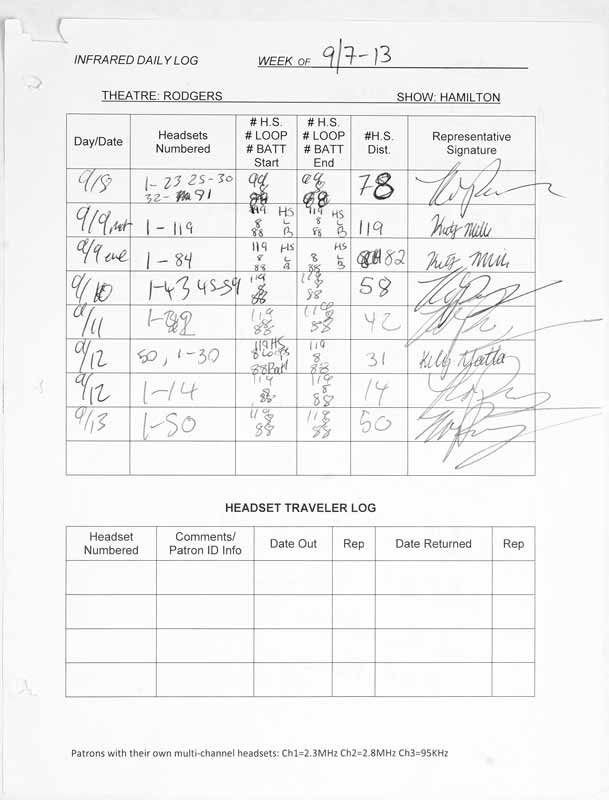 INFRARED DAILY LOG WEEK OF 9/7-13
THEATRE: RODGERS SHOW: HAMILTON
Day/Date Headsets Numbered # H.S. # LOOP # BATT Start # H.S. # LOOP # BATT End #H.S. Dist. Representative Signature
9/8 1-23 25-30 78
32- 91
9/9 mat 1-119 119 HS 8 L 88 B 119 HS 8 L 88 B 119
9/9 eve 1-84 119 HS 8 L 88 B HS 8 L 88 B 82
9/10 1-43 45-59 119 8 88 119 8 88 58
9/11 119 8 88 119 8 88 42
9/12 50, 1-30 119 HS 8 Loops 88 Batt 119 8 88 31
9/12 1-14 119 8 88 119 8 88 14
9/13 1-50 119 8 88 119 8 88 50
HEADSET TRAVELER LOG
Headset Numbered Comments/ Patron ID Info Date Out Rep Date Returned Rep
Patrons with their own multi-channel headsets: Ch1=2.3MHz Ch2=2.8MHz Ch3=95KHz